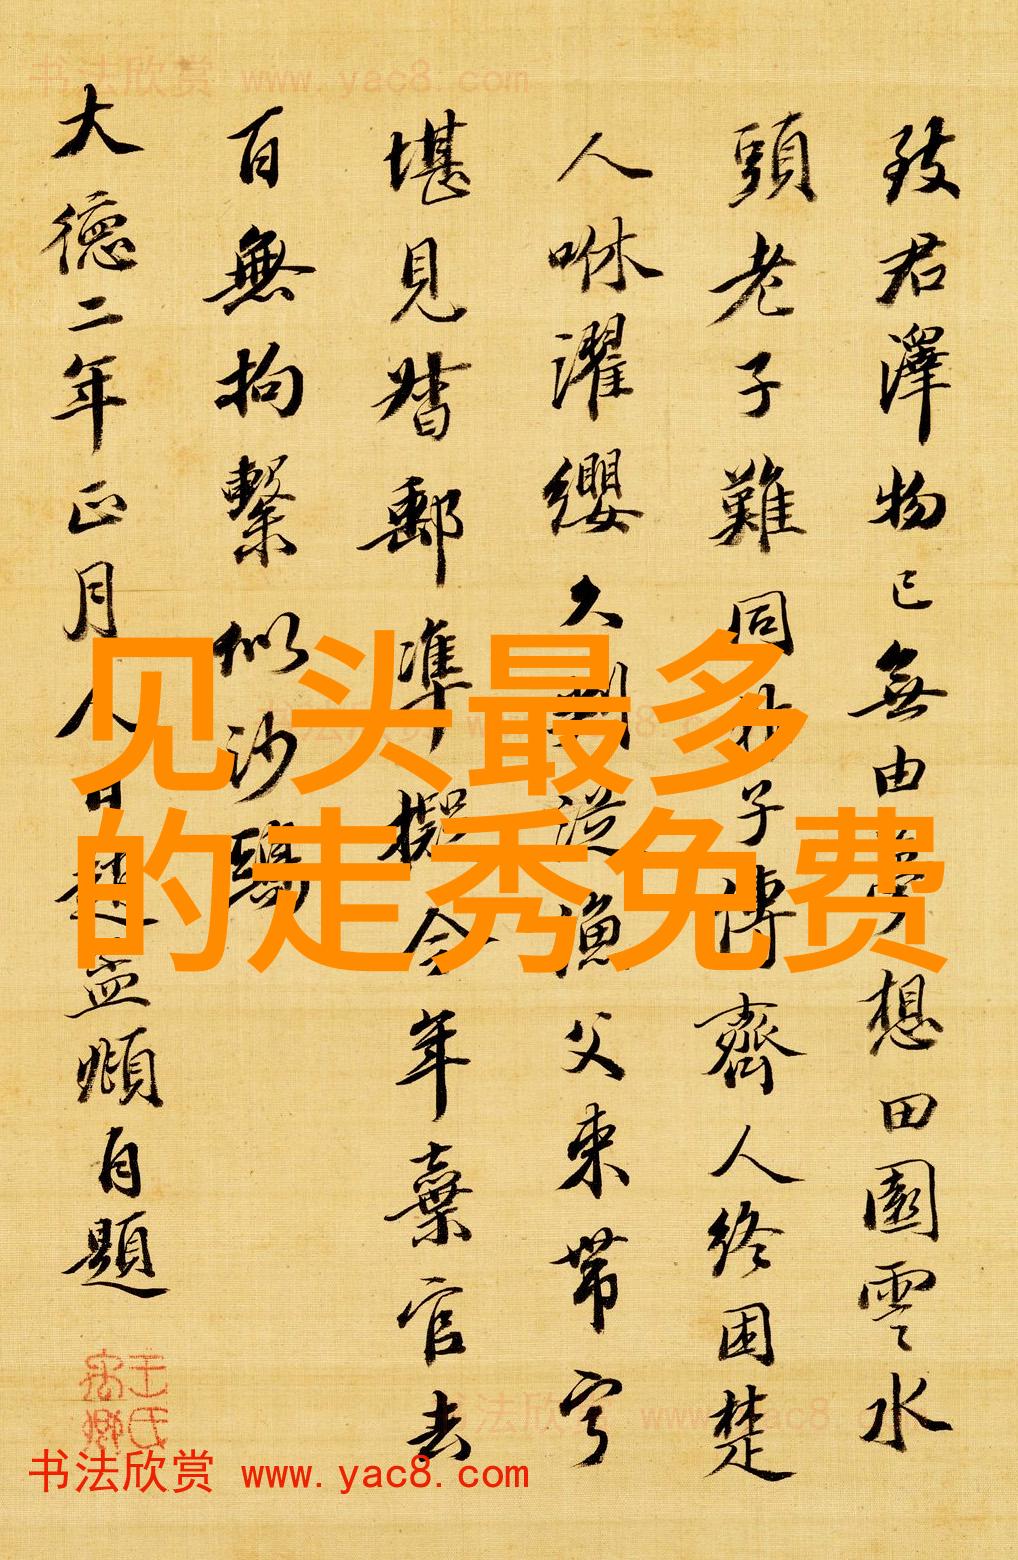 书法欣赏 www.yac8.com
致君澤物已無由夢想田園雲水
頭老子難同非子傳齊人終困楚
人咻濯纓久判從漁父束帶寧
堪見督郵準擬今年棄官去
百無拘繫似沙鷗
大德二年正月人日趙孟頫自題
见头最多
的走秀免费
书法欣赏 www.yac8.com
书法欣赏 www.yac8.com